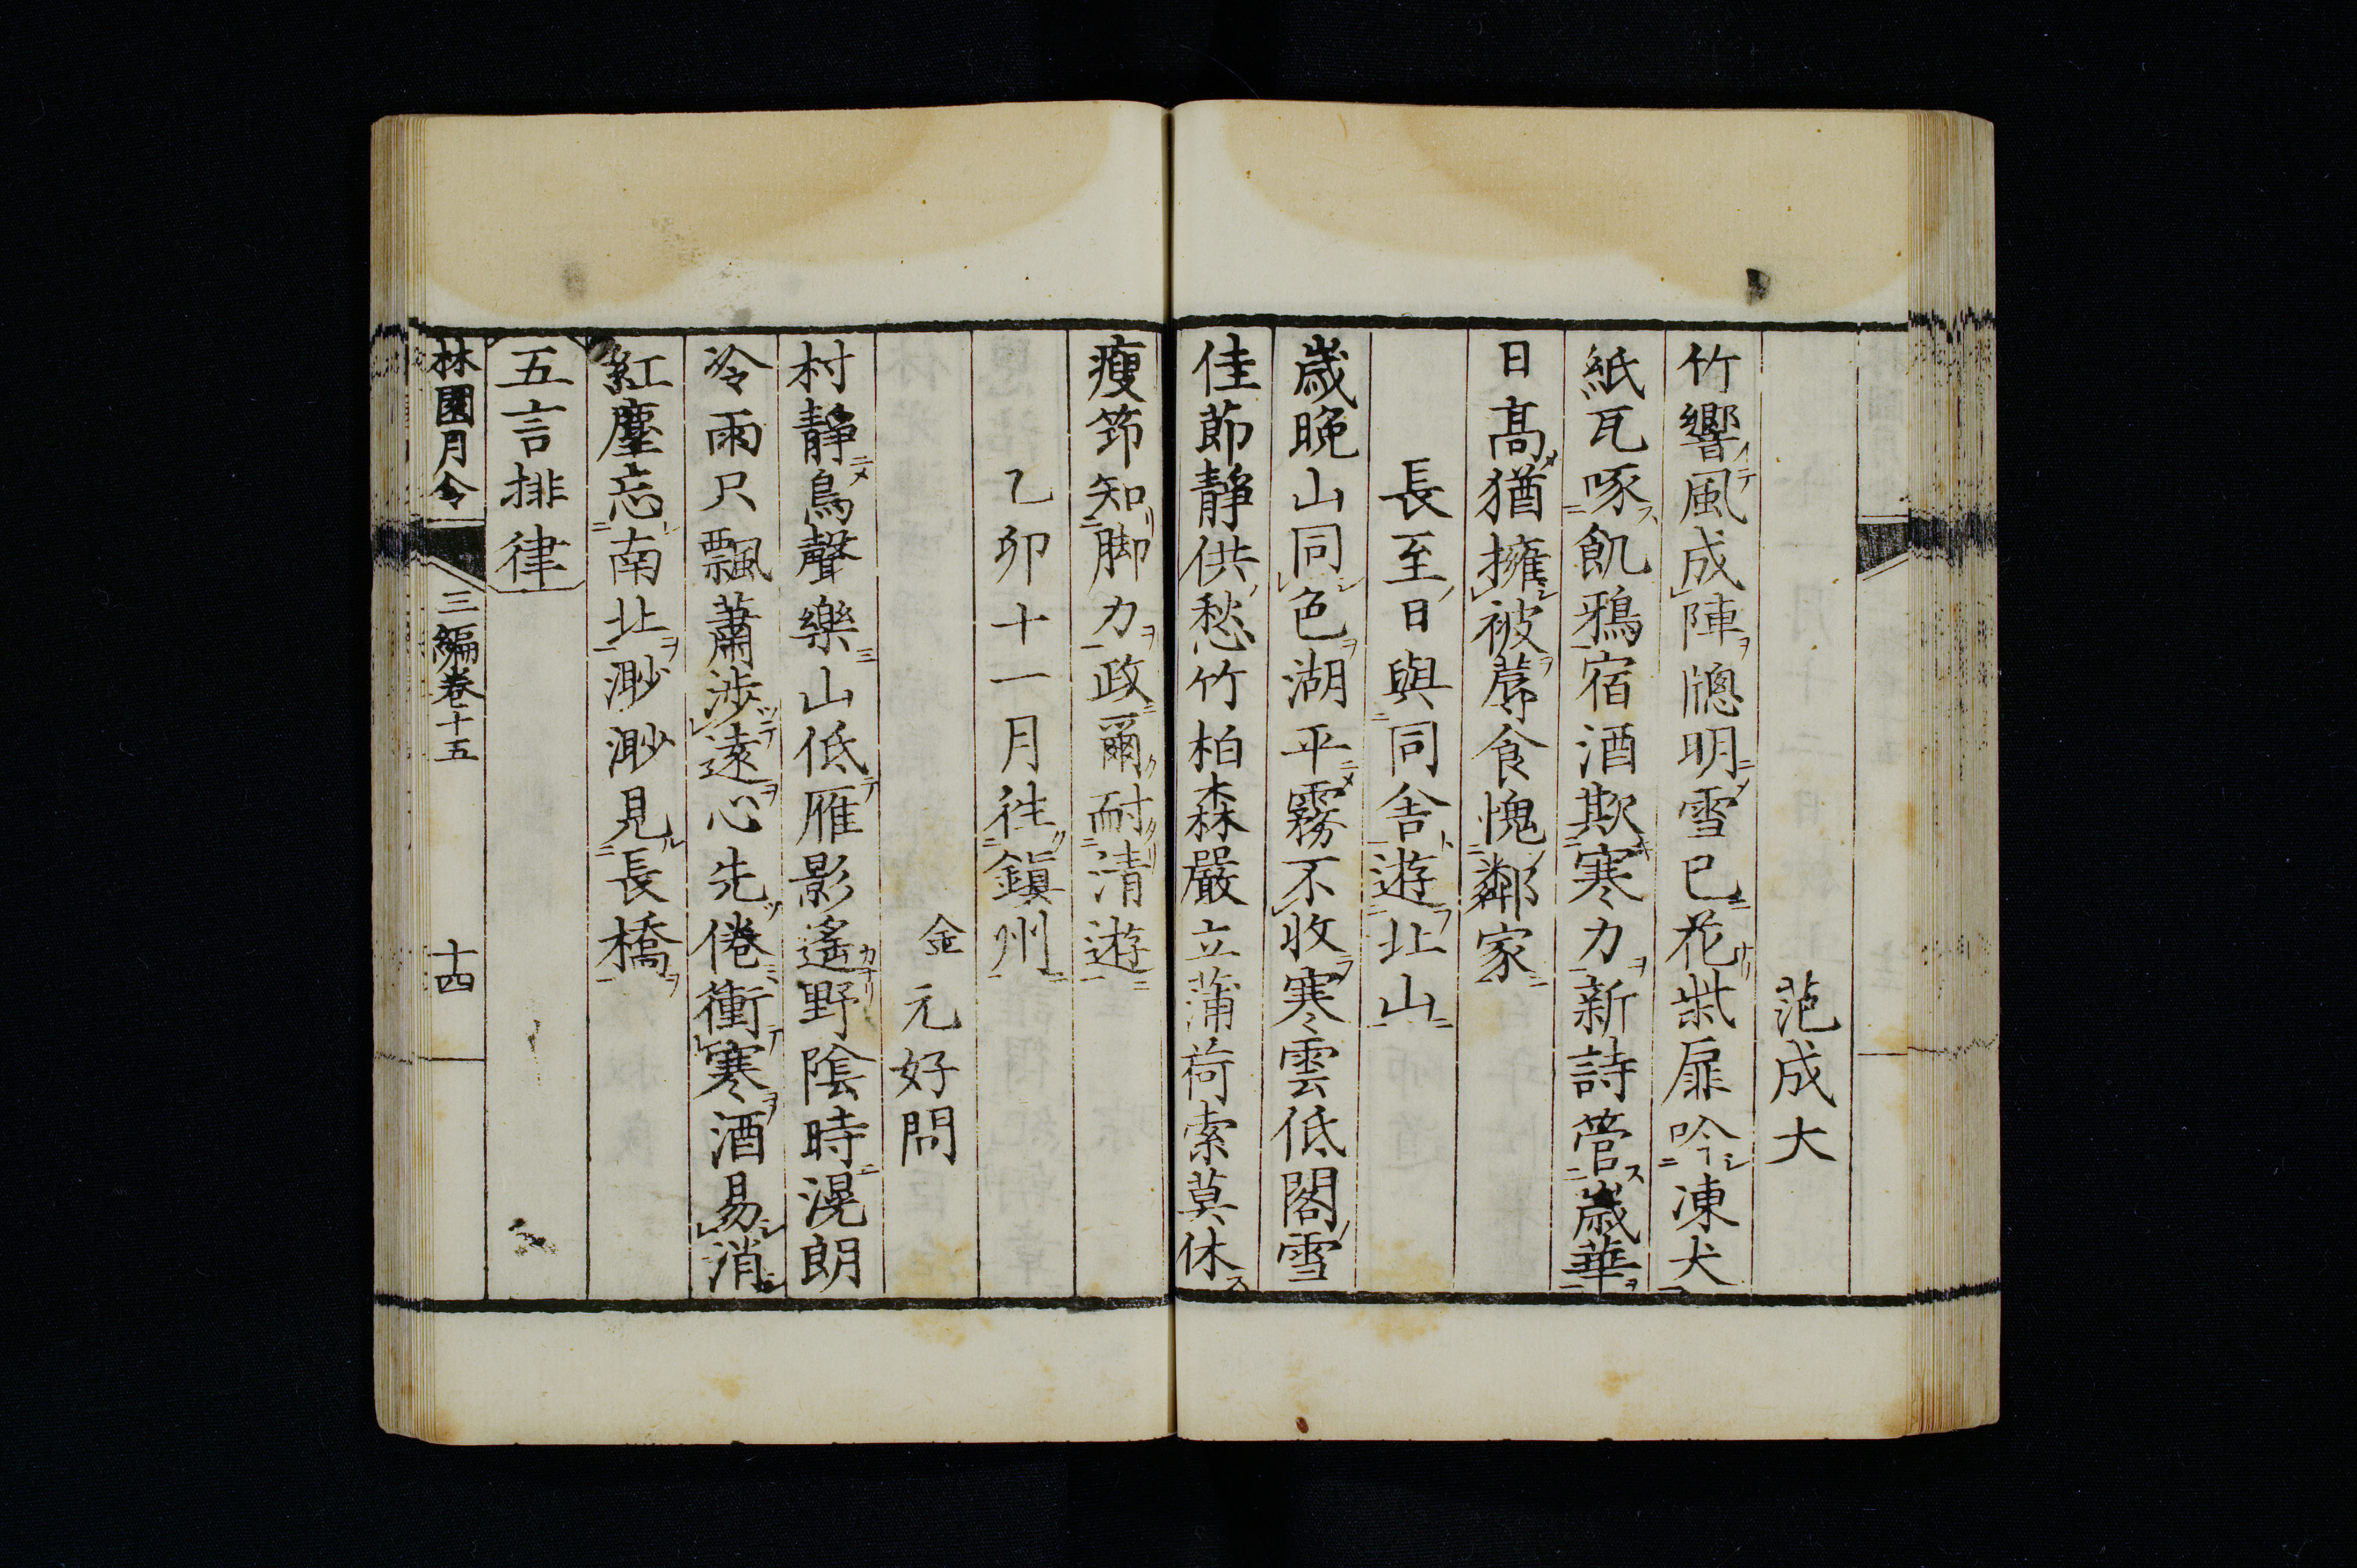 范成大
竹響風成陣牕明雪已花柴扉吟凍犬
紙瓦啄飢鴉宿酒欺寒力新詩管歳華
日高猶擁被蓐食愧鄰家
長至日與同舍遊北山
歳晩山同色湖平霧不收寒雲低閣雪
佳節靜供愁竹柏森嚴立蒲荷索莫休
瘦笻知脚力政爾耐清遊
乙卯十一月往鎭州
金 元好問
村靜鳥聲樂山低雁影遙野陰時滉朗
冷雨只飄蕭渉遠心先倦衝寒酒易消
紅塵忘南北渺渺見長橋
五言排律
林園月令 三編卷十五 十四